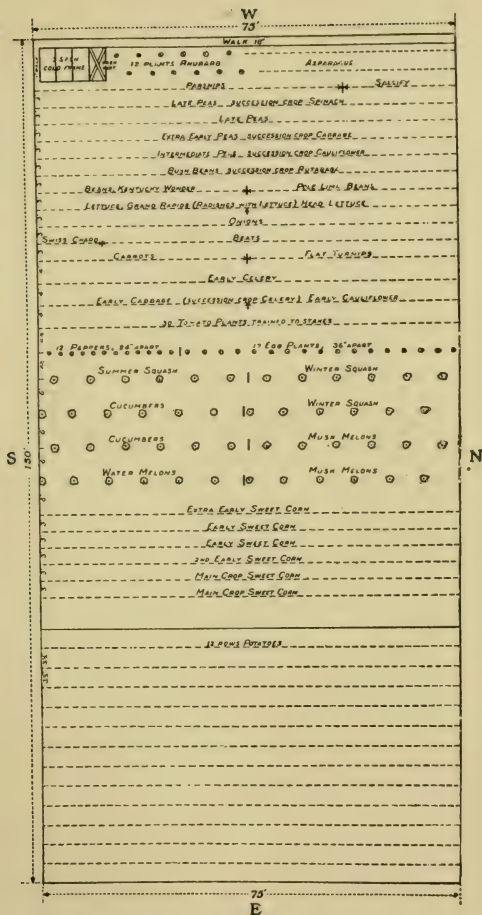 W
75'
WALK 18"
3 SASH COLD FRAME
12 PLANTS RHUBARB ASPARAGUS
PARSNIPS SALSIFY
LATE PEAS SUCCESSION CROP SPINACH
LATE PEAS
EXTRA EARLY PEAS SUCCESSION CROP CABBAGE
INTERMEDIATE PEAS SUCCESSION CROP CAULIFLOWER
BUSH BEANS SUCCESSION CROP RUTABAGA
BEANS KENTUCKY WONDER POLE LIMA BEANS
LETTUCE GRAND RAPIDS (RADISHES WITH LETTUCE) HEAD LETTUCE
ONIONS
SWISS CHARD BEETS
CARROTS FLAT TURNIPS
EARLY CELERY
EARLY CABBAGE (SUCCESSION CROP CELERY) EARLY CAULIFLOWER
30 TOMATO PLANTS TRAINED TO STAKES
PEPPERS, APART 17 EGG PLANTS, 36" APART
SUMMER SQUASH WINTER SQUASH
CUCUMBERS WINTER SQUASH
CUCUMBERS MUSK MELONS
S 150' N
WATER MELONS MUSK MELONS
EXTRA EARLY SWEET CORN
EARLY SWEET CORN
EARLY SWEET CORN
2ND EARLY SWEET CORN
MAIN CROP SWEET CORN
MAIN CROP SWEET CORN
ROWS POTATOES
75'
E